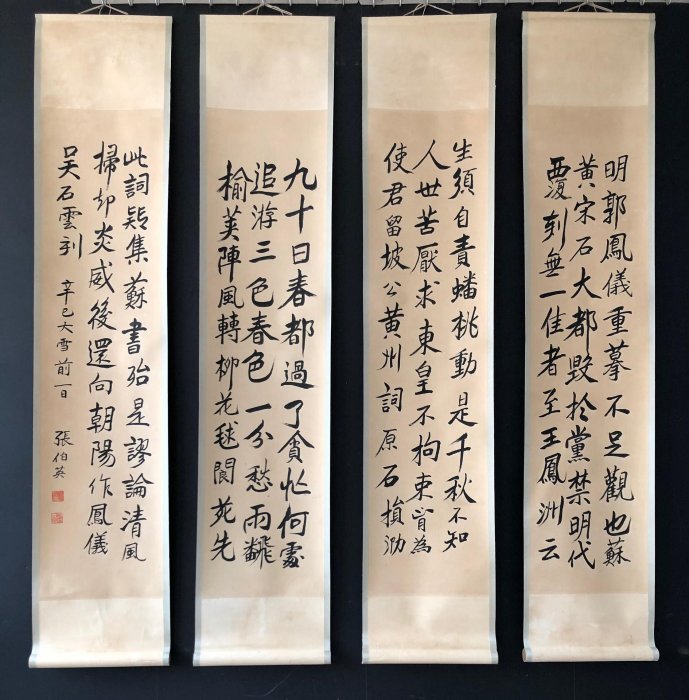 九十日春都過了貪忙何處
追游三色春色一分愁雨飜
榆莢陣風轉柳花毬閬苑先
生須自責蟠桃動是千秋不知
人世苦厭求東皇不拘束肯為
使君留坡公黃州詞原石損泐
明郭鳳儀重摹不足觀也蘇
黃宋石大都毀於黨禁明代
覆刻無一佳者至王鳳洲云
此詞疑集蘇書殆是謬論清風
掃却炎威後還向朝陽作鳳儀
吳石雲刻 辛巳大雪前一日 張伯英